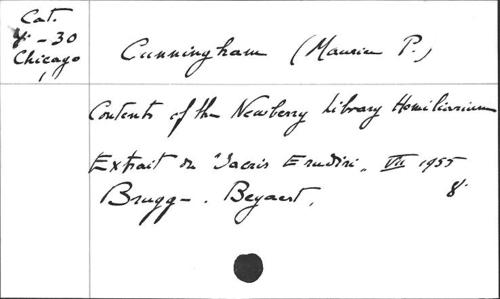 Cat.
y - 30
Chicago
Cunningham (Maurice P.)
Contents of the Newberry Library Homiliarium
Extrait de "Sacris Erudiri" VII 1955
Brugge. Beyaert, 8°